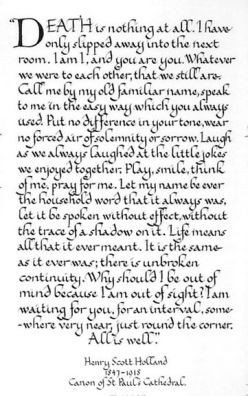 "DEATH is nothing at all. I have
only slipped away into the next
room. I am I, and you are you. Whatever
we were to each other, that we still are.
Call me by my old familiar name, speak
to me in the easy way which you always
used. Put no difference in your tone, wear
no forced air of solemnity or sorrow. Laugh
as we always laughed at the little jokes
we enjoyed together. Play, smile, think
of me, pray for me. Let my name be ever
the household word that it always was,
let it be spoken without effect, without
the trace of a shadow on it. Life means
all that it ever meant. It is the same
as it ever was; there is unbroken
continuity. Why should I be out of
mind because I am out of sight? I am
waiting for you, for an interval, some-
-where very near, just round the corner.
All is well."
Henry Scott Holland
1847-1918
Canon of St Paul's Cathedral.